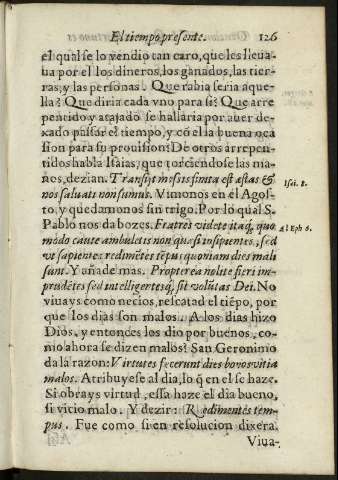 El tiempo presente. 126
el qual se lo vendio tan caro, que les lleua-
ua por el los dineros, los ganados, las tier-
ras, y las personas. Que rabia seria aque-
lla? Que diria cada vno para si? Que arre
pentido y atajado se hallaria por auer de-
xado passar el tiempo, y cõ el la buena oca
sion para su prouision? De otros arrepen-
tidos habla Isaias, que torciendose las ma-
nos, dezian. Transijt messis finita est æstas &
nos saluati non sumus. Vimonos en el Agos-
to, y quedamonos sin trigo. Por lo qual S.
Pablo nos da bozes. Fratres videte itaq, quo
modo caute ambuletis non quasi insipientes, sed
vt sapientes redimẽtes tẽpus quoniam dies mali
sunt. Y añade mas. Propterea nolite fieri im-
prudẽtes sed intelligertesq, sit volũtas Dei. No
viuays como necios, rescatad el tiẽpo, por
que los dias son malos. A los dias hizo
Dios, y entonces los dio por buenos, co-
mo ahora se dizen malos? San Geronimo
da la razon: Virtutes fecerunt dies bonos vitia
malos. Atribuyese al dia, lo q̃ en el se haze.
Si obrays virtud, essa haze el dia bueno,
si vicio malo. Y dezir: Redimentes tem-
pus. Fue como si en resolucion dixera.
Viua-
Isai. 1.
Al Eph 6.